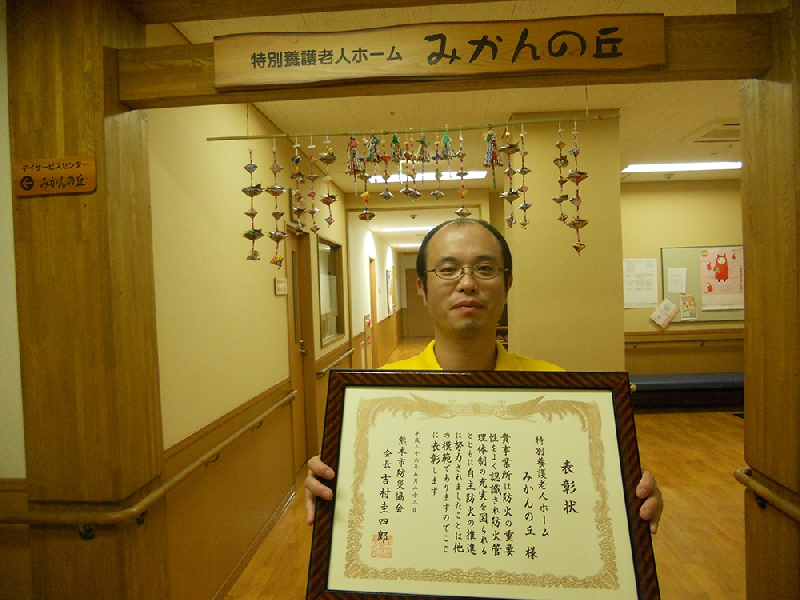 特別養護老人ホーム みかんの丘
デイサービスセンター
みかんの丘
表彰状
特別養護老人ホーム
みかんの丘 様
貴事業所は防火の重要
性をよく認識され防火管
理体制の充実を図られる
とともに自主防火の推進
に努力されましたことは他
の模範でありますのでここ
に表彰します
平成二十六年五月二十三日
熊本市防災協会
会長 吉村圭四郎